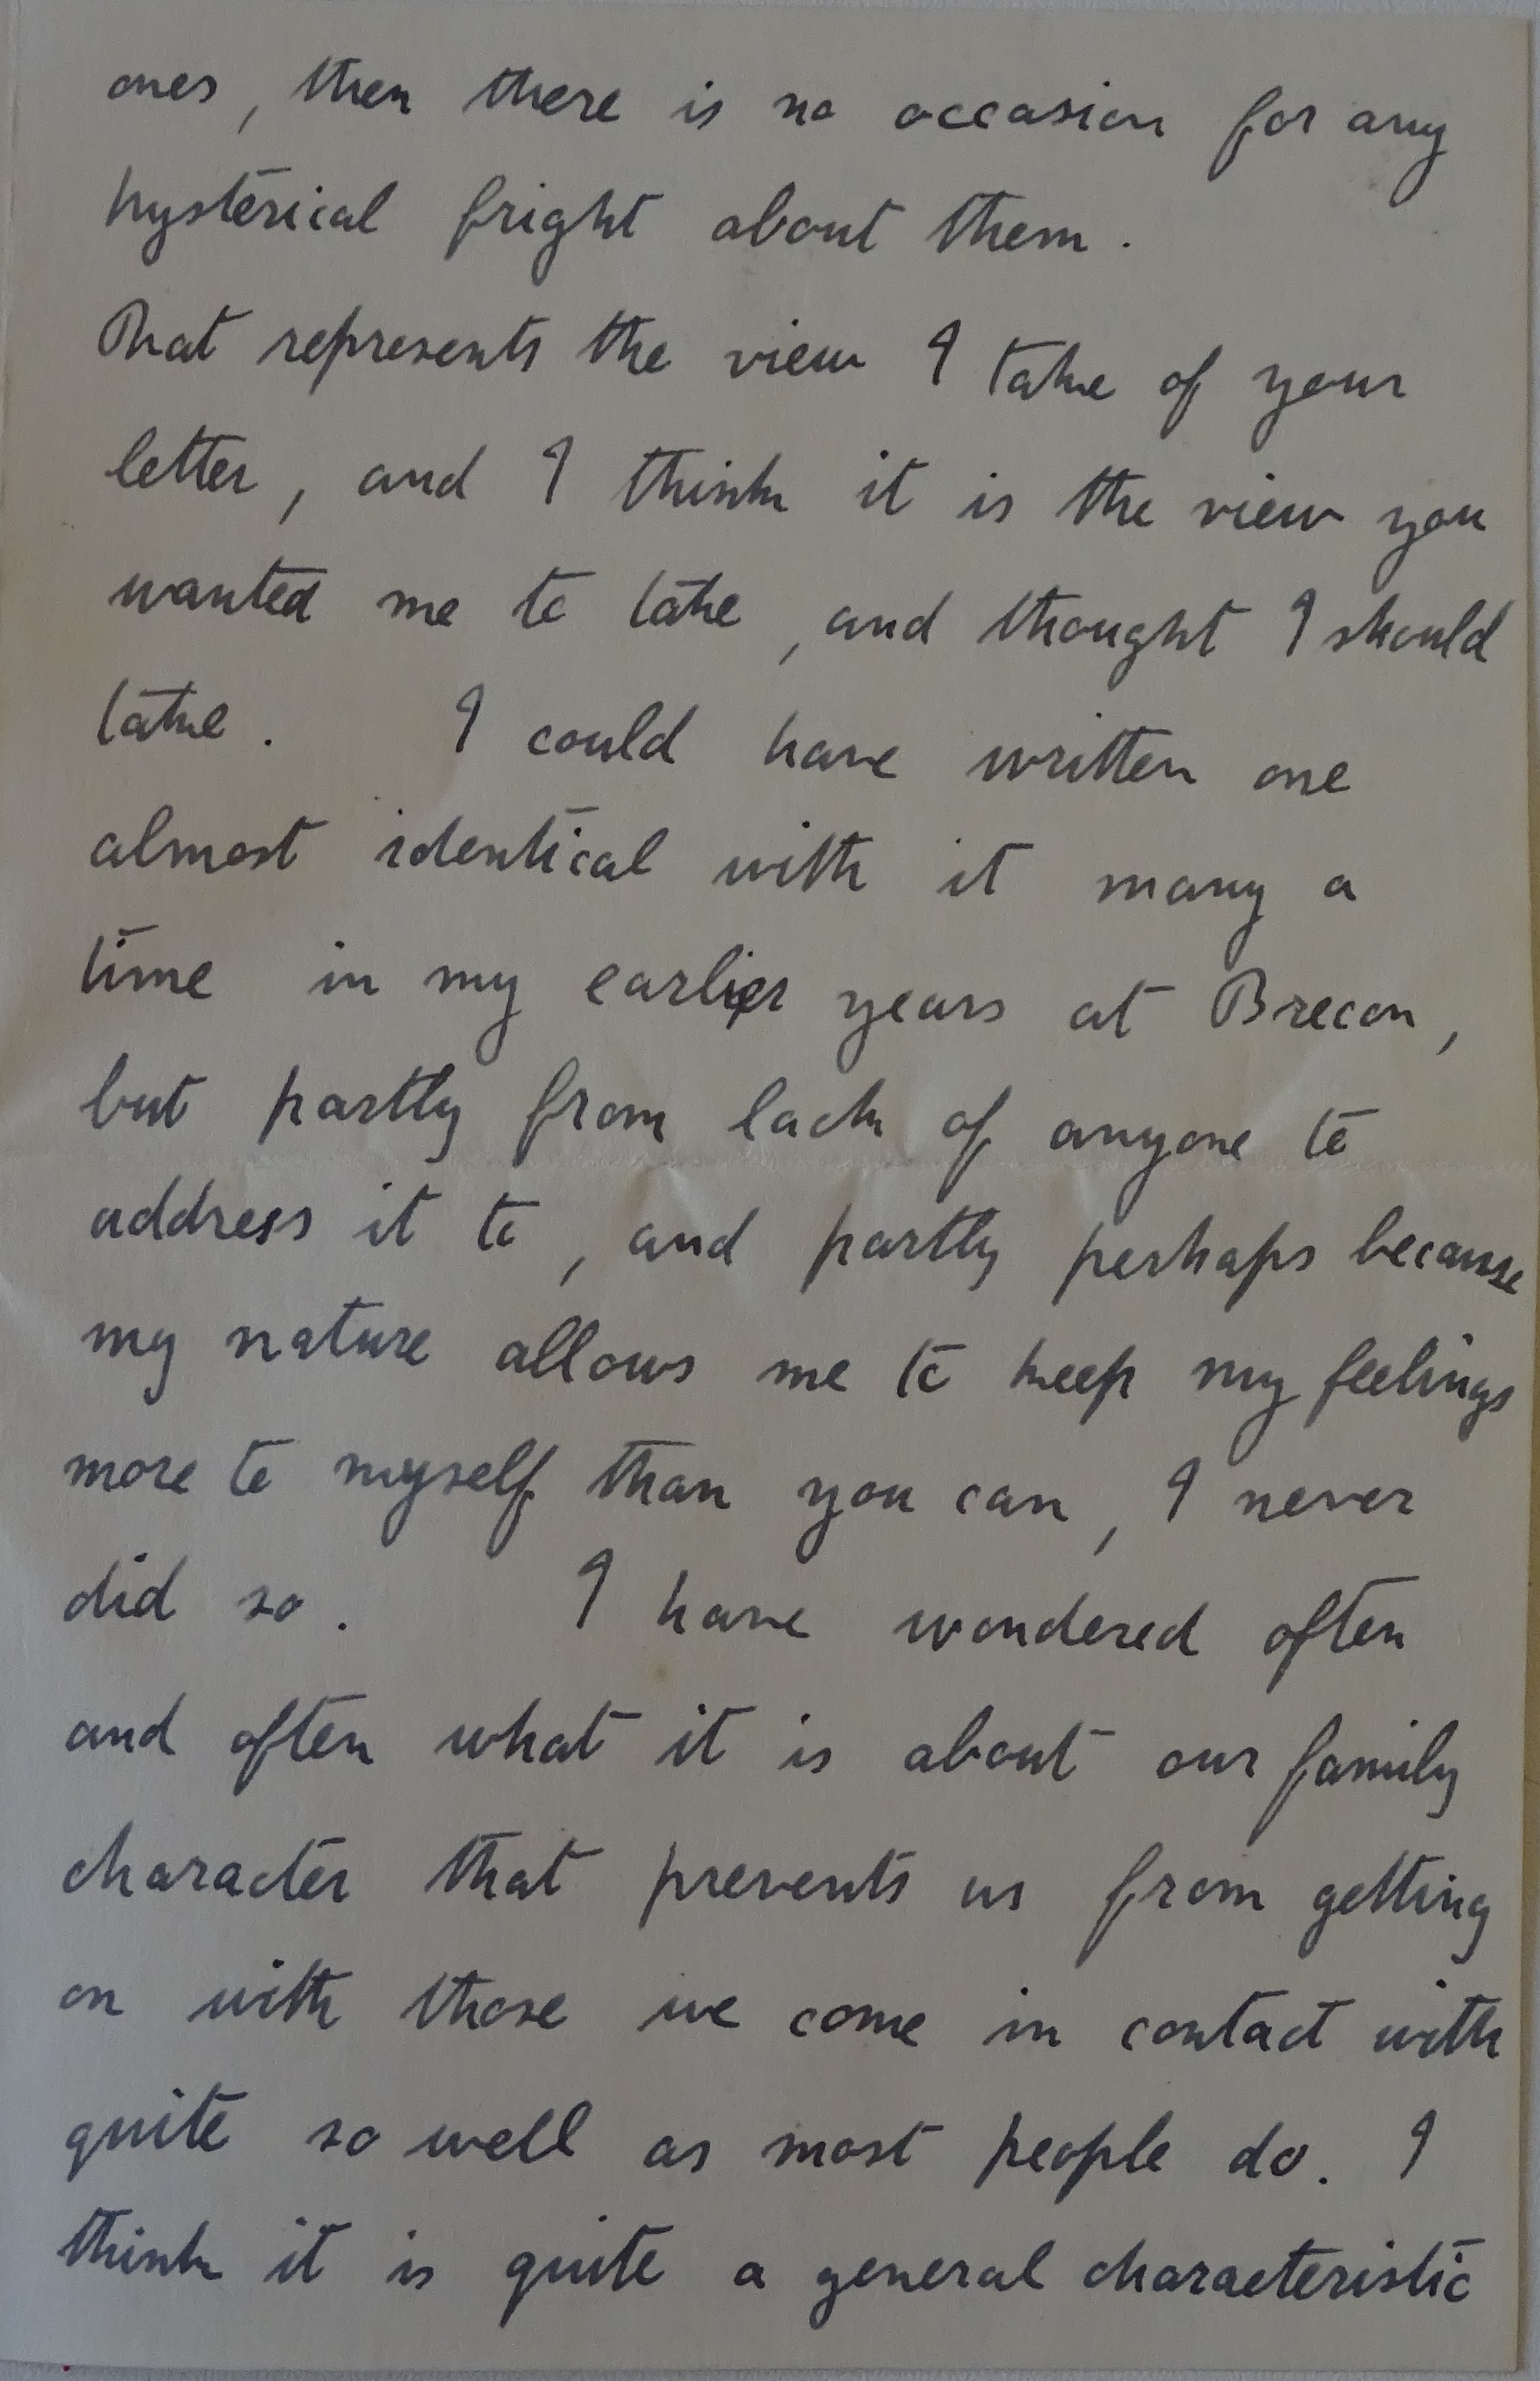 ones, then there is no occasion for any
hysterical fright about them.
That represents the view I take of your
letter, and I think it is the view you
wanted me to take, and thought I should
take. I could have written one
almost identical with it many a
time in my earlier years at Brecon,
but partly from lack of anyone to
address it to, and partly perhaps because
my nature allows me to keep my feelings
more to myself than you can, I never
did so. I have wondered often
and often what it is about our family
character that prevents us from getting
on with those we come in contact with
quite so well as most people do. I
think it is quite a general characteristic